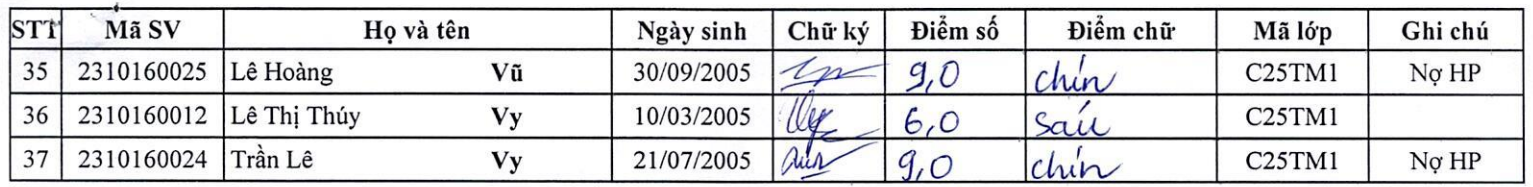 STT Mã SV Họ và tên Ngày sinh Chữ ký Điểm số Điểm chữ Mã lớp Ghi chú
35 2310160025 Lê Hoàng Vũ 30/09/2005 9,0 chín C25TM1 Nợ HP
36 2310160012 Lê Thị Thúy Vy 10/03/2005 6,0 sáu C25TM1
37 2310160024 Trần Lê Vy 21/07/2005 9,0 chín C25TM1 Nợ HP